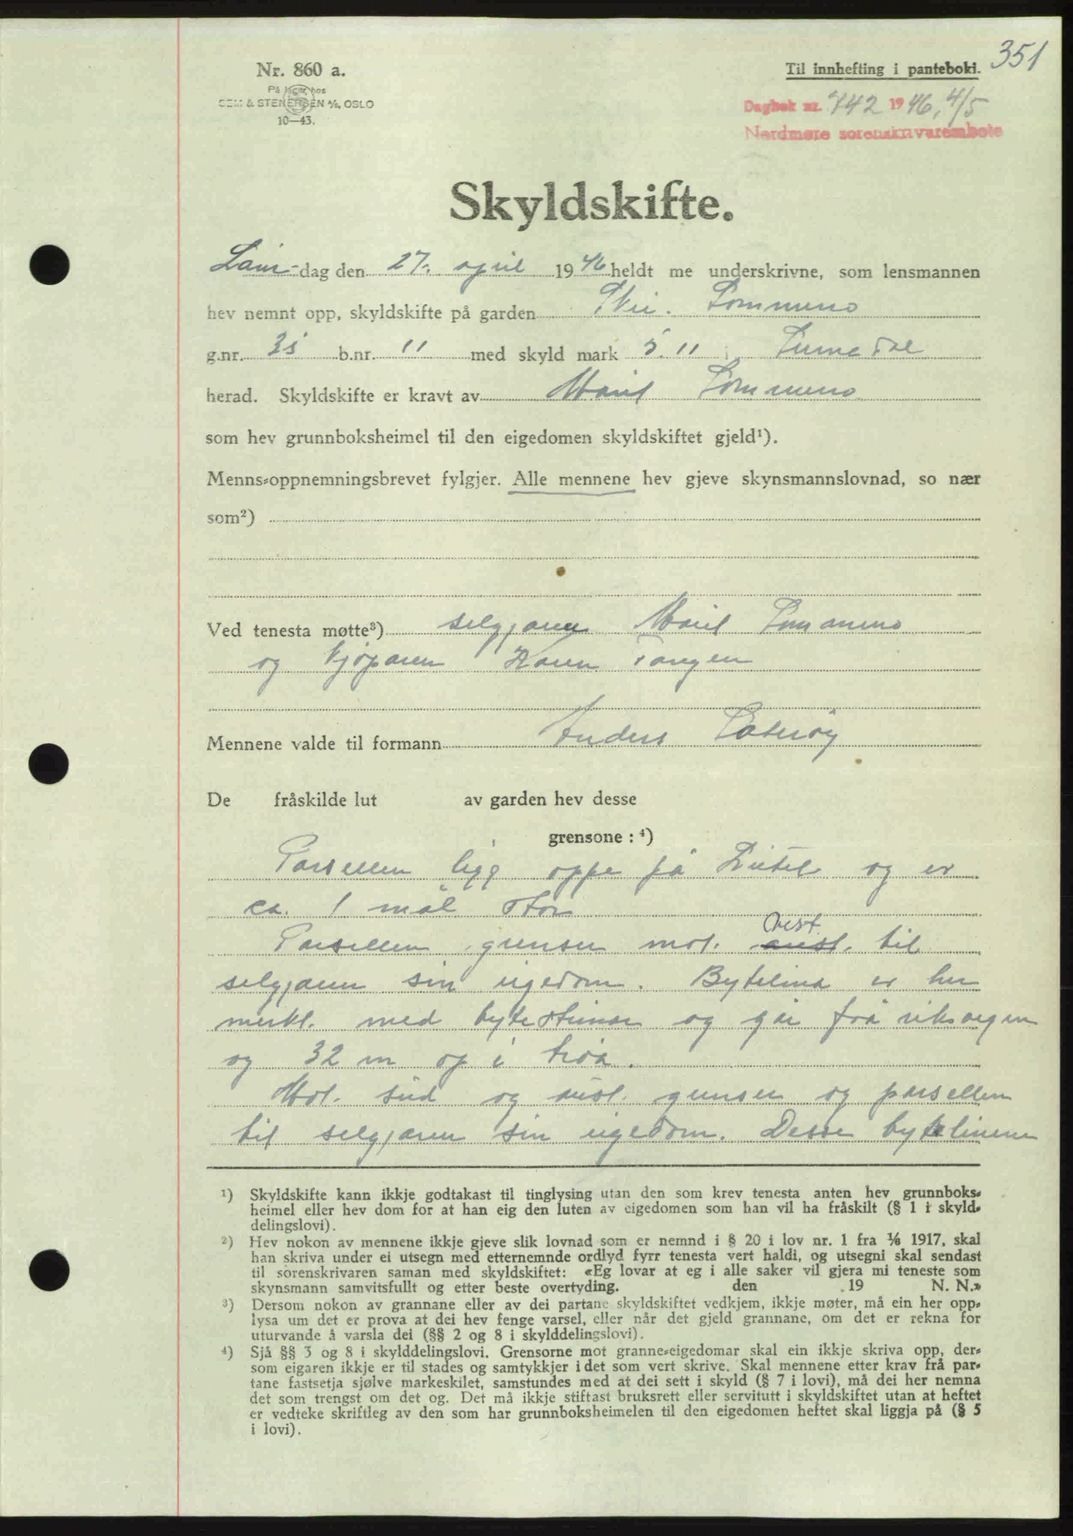 351
Nr. 860 a.
Til innhefting i panteboki.
På lager hos
SEM & STENERSEN A/S, OSLO
10—43.
Dagbok nr. 742 1946, 4/5
Nordmøre sorenskrivarembete
Skyldskifte.
Laur-dag den 27. april 1946 heldt me underskrivne, som lensmannen
hev nemnt opp, skyldskifte på garden
g.nr. 35 b.nr. 11 med skyld mark 5.11
herad. Skyldskifte er kravt av Marit
som hev grunnboksheimel til den eigedomen skyldskiftet gjeld¹).
Menns-oppnemningsbrevet fylgjer. Alle mennene hev gjeve skynsmannslovnad, so nær
som²)
Ved tenesta møtte³) selgjaren Marit
og kjøparen Karen Tangen
Mennene valde til formann Anders
De fråskilde lut av garden hev desse
grensone : ⁴)
Parsellen ligg oppe på og er
ca. 1 mål stor
Parsellen grenser mot. aust. Vest. til
selgjaren sin eigedom. Bytelina er her
merkt. med bytesteinar og går frå riksvegen
og 32 m op i
Mot. sud og aust. grenser og parsellen
til selgjaren sin eigedom. Desse bytelinene
¹) Skyldskifte kann ikkje godtakast til tinglysing utan den som krev tenesta anten hev grunnboks-
heimel eller hev dom for at han eig den luten av eigedomen som han vil ha fråskilt (§ 1 i skyld-
delingslovi).
²) Hev nokon av mennene ikkje gjeve slik lovnad som er nemnd i § 20 i lov nr. 1 fra 1/6 1917, skal
han skriva under ei utsegn med etternemnde ordlyd fyrr tenesta vert haldi, og utsegni skal sendast
til sorenskrivaren saman med skyldskiftet: «Eg lovar at eg i alle saker vil gjera mi teneste som
skynsmann samvitsfullt og etter beste overtyding. den 19 N. N.»
³) Dersom nokon av grannane eller av dei partane skyldskiftet vedkjem, ikkje møter, må ein her opp-
lysa um det er prova at dei hev fenge varsel, eller når det gjeld grannane, om det er rekna for
uturvande å varsla dei (§§ 2 og 8 i skylddelingslovi).
⁴) Sjå §§ 3 og 8 i skylddelingslovi. Grensorne mot granne-eigedomar skal ein ikkje skriva opp, der-
som eigaren ikkje er til stades og samtykkjer i det som vert skrive. Skal mennene etter krav frå par-
tane fastsetja sjølve markeskilet, samstundes med at dei sett i skyld (§ 7 i lovi), må dei her nemna
det som trengst om det og. Det må ikkje stiftast bruksrett eller servitutt i skyldskiftet utan at heftet
er vedteke skriftleg av den som har grunnboksheimelen til den eigedomen heftet skal liggja på (§ 5
i lovi).